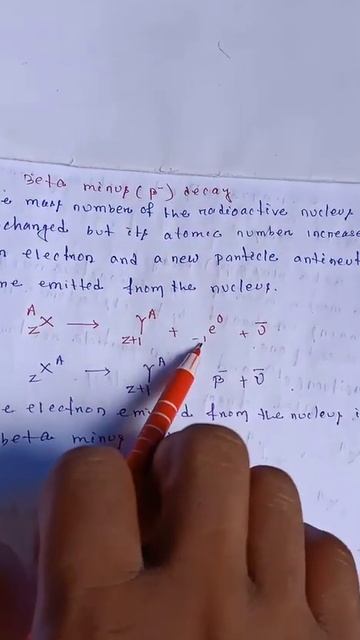 Beta minus (β⁻) decay
e mass number of the radioactive nucleus
changed but its atomic number increase
n electron and a new particle antineut
me emitted from the nucleus.
ᴬ_Z X → _{Z+1}Yᴬ + ₋₁e⁰ + ν̄
_Z Xᴬ → _{Z+1}Yᴬ β̄ + ν̄
e electron from the nucleus i
beta minus